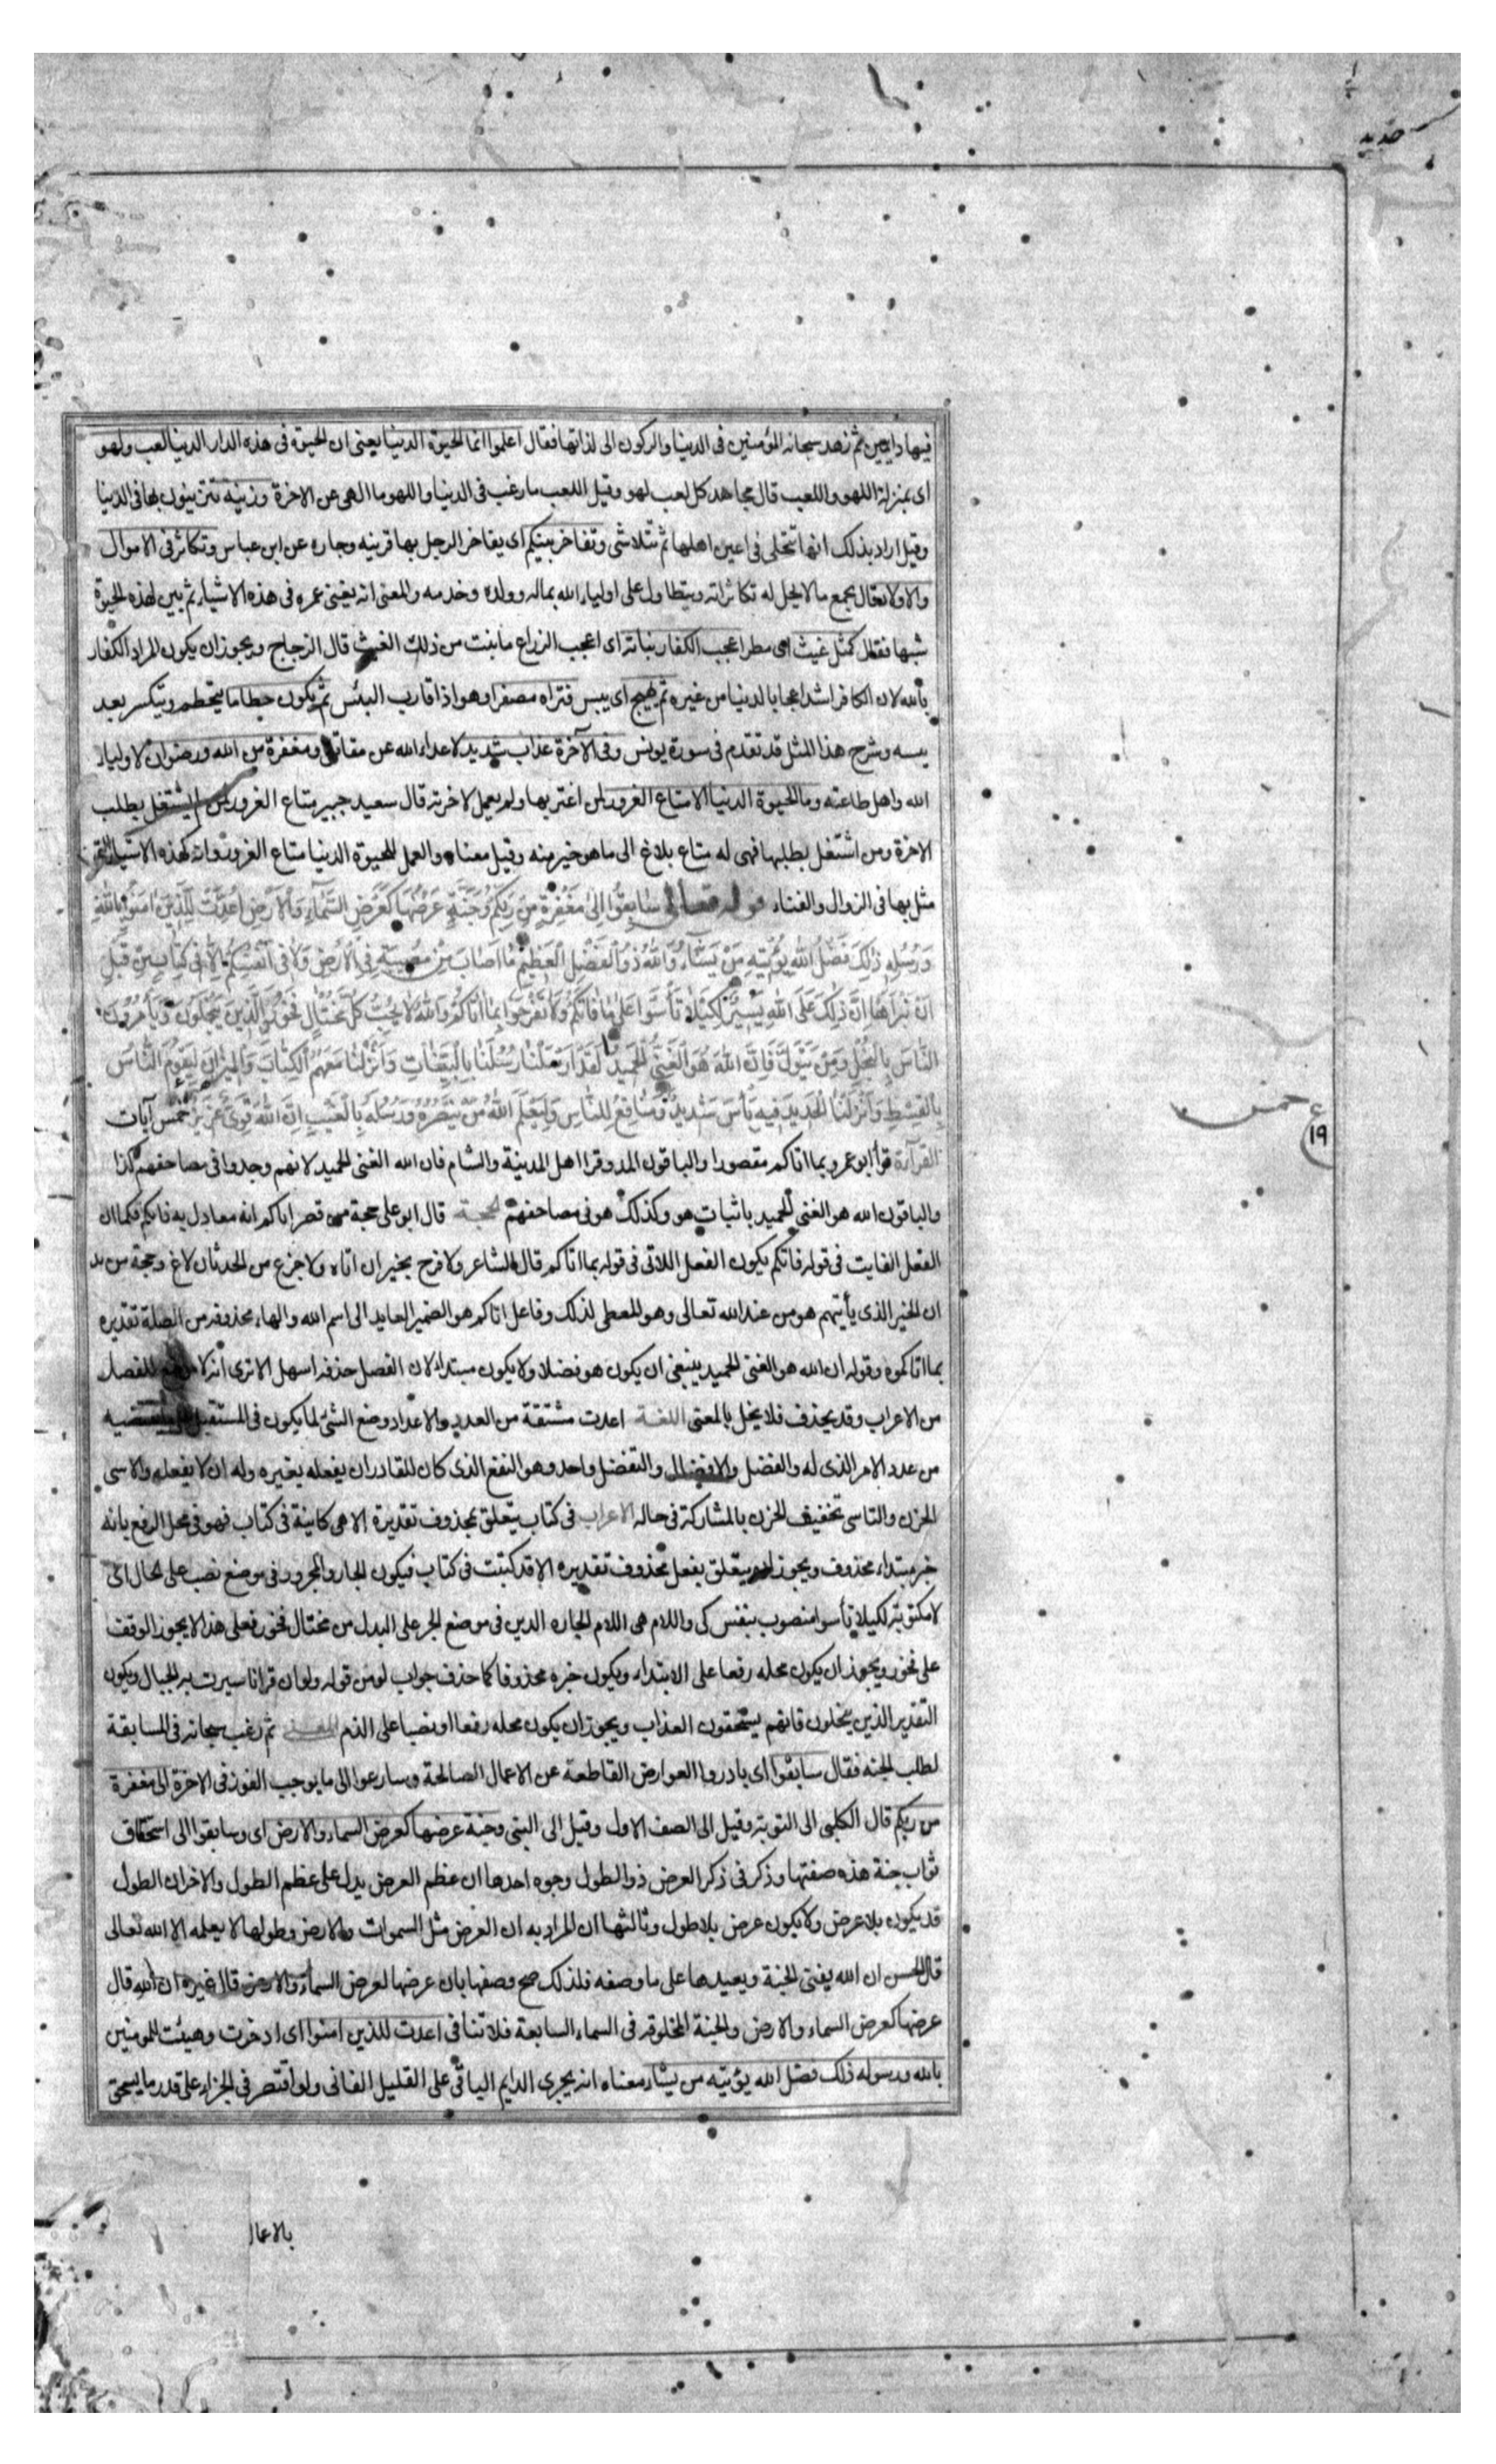 حديد
فيها دايمين ثم زهد سبحانه المؤمنين فى الدنيا والركون الى لذاتها فقال اعلموا انما الحيوة الدنيا يعنى ان الحيوة فى هذه الدار الدنيا لعب ولهو
اى بمنزلة اللهو واللعب قال مجاهد كل لعب لهو وقيل اللعب ما رغب فى الدنيا واللهو ما الهى عن الاخرة وزينة تتزينون بها فى الدنيا
وقيل اراد بذلك انها تتحلى فى اعين اهلها ثم تتلاشى وتفاخر بينكم اى يفاخر الرجل بها قرينه وجاره عن ابن عباس وتكاثر فى الاموال
والاولاد قال يجمع ما لا يحل له تكاثرا به ويتطاول على اولياء الله بماله وولده وخدمه والمعنى انه يفنى عمره فى هذه الاشياء ثم بين لهذه الحيوة
شبها فقال كمثل غيث اى مطر اعجب الكفار نباته اى اعجب الزراع ما نبت من ذلك الغيث قال الزجاج ويجوز ان يكون المراد الكفار
بالله لان الكافر اشد اعجابا بالدنيا من غيره ثم يهيج اى ييبس فتراه مصفرا وهو اذا قارب اليبس ثم يكون حطاما يتحطم ويتكسر بعد
يبسه وشرح هذا المثل قد تقدم فى سورة يونس وفى الآخرة عذاب شديد لاعداء الله عن مقاتل ومغفرة من الله ورضوان لاولياء
الله واهل طاعته وما الحيوة الدنيا الا متاع الغرور لمن اغتر بها ولم يعمل لاخرته قال سعيد جبير متاع الغرور لمن لم يشتغل بطلب
الاخرة ومن اشتغل بطلبها فهى له متاع بلاغ الى ما هو خير منه وقيل معناه والعمل للحيوة الدنيا متاع الغرور وانه كهذه الاشياء التى
مثل بها فى الزوال والفناء قوله تعالى سَابِقُوا إِلَىٰ مَغْفِرَةٍ مِنْ رَبِّكُمْ وَجَنَّةٍ عَرْضُهَا كَعَرْضِ السَّمَاءِ وَالْأَرْضِ أُعِدَّتْ لِلَّذِينَ آمَنُوا بِاللَّهِ
وَرُسُلِهِ ذَٰلِكَ فَضْلُ اللَّهِ يُؤْتِيهِ مَنْ يَشَاءُ وَاللَّهُ ذُو الْفَضْلِ الْعَظِيمِ مَا أَصَابَ مِنْ مُصِيبَةٍ فِي الْأَرْضِ وَلَا فِي أَنْفُسِكُمْ إِلَّا فِي كِتَابٍ مِنْ قَبْلِ
أَنْ نَبْرَأَهَا إِنَّ ذَٰلِكَ عَلَى اللَّهِ يَسِيرٌ لِكَيْلَا تَأْسَوْا عَلَىٰ مَا فَاتَكُمْ وَلَا تَفْرَحُوا بِمَا آتَاكُمْ وَاللَّهُ لَا يُحِبُّ كُلَّ مُخْتَالٍ فَخُورٍ الَّذِينَ يَبْخَلُونَ وَيَأْمُرُونَ
النَّاسَ بِالْبُخْلِ وَمَنْ يَتَوَلَّ فَإِنَّ اللَّهَ هُوَ الْغَنِيُّ الْحَمِيدُ لَقَدْ أَرْسَلْنَا رُسُلَنَا بِالْبَيِّنَاتِ وَأَنْزَلْنَا مَعَهُمُ الْكِتَابَ وَالْمِيزَانَ لِيَقُومَ النَّاسُ
بِالْقِسْطِ وَأَنْزَلْنَا الْحَدِيدَ فِيهِ بَأْسٌ شَدِيدٌ وَمَنَافِعُ لِلنَّاسِ وَلِيَعْلَمَ اللَّهُ مَنْ يَنْصُرُهُ وَرُسُلَهُ بِالْغَيْبِ إِنَّ اللَّهَ قَوِيٌّ عَزِيزٌ خمس آيات
خمس
ع ١٩
القرآءة قرأ ابو عمرو بما اتاكم مقصورا والباقون المد وقرا اهل المدينة والشام فان الله الغنى الحميد لانهم وجدوا فى مصاحفهم كذا
والباقون الله هو الغنى الحميد باثبات هو وكذلك هو فى مصاحفهم الحجة قال ابو على حجة من قصر اتاكم انه معادل به فاتكم فكما ان
الفعل الفايت فى قوله فاتكم يكون الفعل اللاتى فى قوله بما اتاكم قال الشاعر ولا فرح بخير ان اتاه ولا جزع من الحدثان لاع وحجة من مد
ان الخير الذى يأتيهم هو من عند الله تعالى وهو المعطى لذلك وفاعل اتاكم هو الضمير العايد الى اسم الله والهاء محذوفة من الصلة تقديره
بما اتاكموه وقوله ان الله هو الغنى الحميد ينبغى ان يكون هو فضلا ولا يكون مبتداء لان الفصل حذفه اسهل الا ترى انه لا موضع للفصل
من الاعراب وقد يحذف فلا يخل بالمعنى اللغة اعدت مشتقة من العدد والاعداد وضع الشئ لما يكون فى المستقبل على ما يقتضيه
من عدد الامر الذى له والفضل والافضال والتفضل واحد وهو النفع الذى كان للقادر ان يفعله بغيره وله ان لا يفعله والاسى
الحزن والتاسى تخفيف الحزن بالمشاركة فى حاله الاعراب فى كتاب يتعلق بمحذوف تقديرة الا هى كاينة فى كتاب فهو فى محل الرفع بانه
خبر مبتداء محذوف ويجوز ان يتعلق بفعل محذوف تقديره الا قد كتبت فى كتاب فيكون الجار والمجرور فى موضع نصب على الحال اى
لا مكتوبة لكيلا تأسوا منصوب بنفس كى واللام هى اللام الجاره الذين فى موضع الجر على البدل من مختال فخور فعلى هذا لا يجوز الوقف
على فخور ويجوز ان يكون محله رفعا على الابتداء ويكون خبره محذوفا كما حذف جواب لو من قوله ولو ان قرانا سيرت به الجبال ويكون
التقدير الذين يبخلون فانهم يستحقون العذاب ويجوز ان يكون محله رفعا او نصبا على الذم المعنى ثم رغب سبحانه فى المسابقة
لطلب الجنة فقال سابقوا اى بادروا العوارض القاطعة عن الاعمال الصالحة وسارعوا الى ما يوجب الفوز فى الاخرة الى مغفرة
من ربكم قال الكلبى الى التوبة وقيل الى الصف الاول وقيل الى النبى وجنة عرضها كعرض السماء والارض اى وسابقوا الى استحقاق
ثواب جنة هذه صفتها وذكر فى ذكر العرض ذو الطول وجوه احدها ان عظم العرض يدل على عظم الطول والاخر ان الطول
قد يكون بلا عرض ولا يكون عرض بلا طول وثالثها ان المراد به ان العرض مثل السموات والارض وطولها لا يعلمه الا الله تعالى
قال الحسن ان الله يفنى الجنة ويعيدها على ما وصفه فلذلك صح وصفها بان عرضها كعرض السماء والارض قال غيره ان الله قال
عرضها كعرض السماء والارض والجنة المخلوقة فى السماء السابعة فلا تنافى اعدت للذين امنوا اى ادخرت وهيئت للمومنين
بالله ورسوله ذلك فضل الله يؤتيه من يشاء معناه انه يجرى الدايم الباقى على القليل الفانى ولو اقتصر فى الجزاء على قدر ما يستحق
بالاعمال